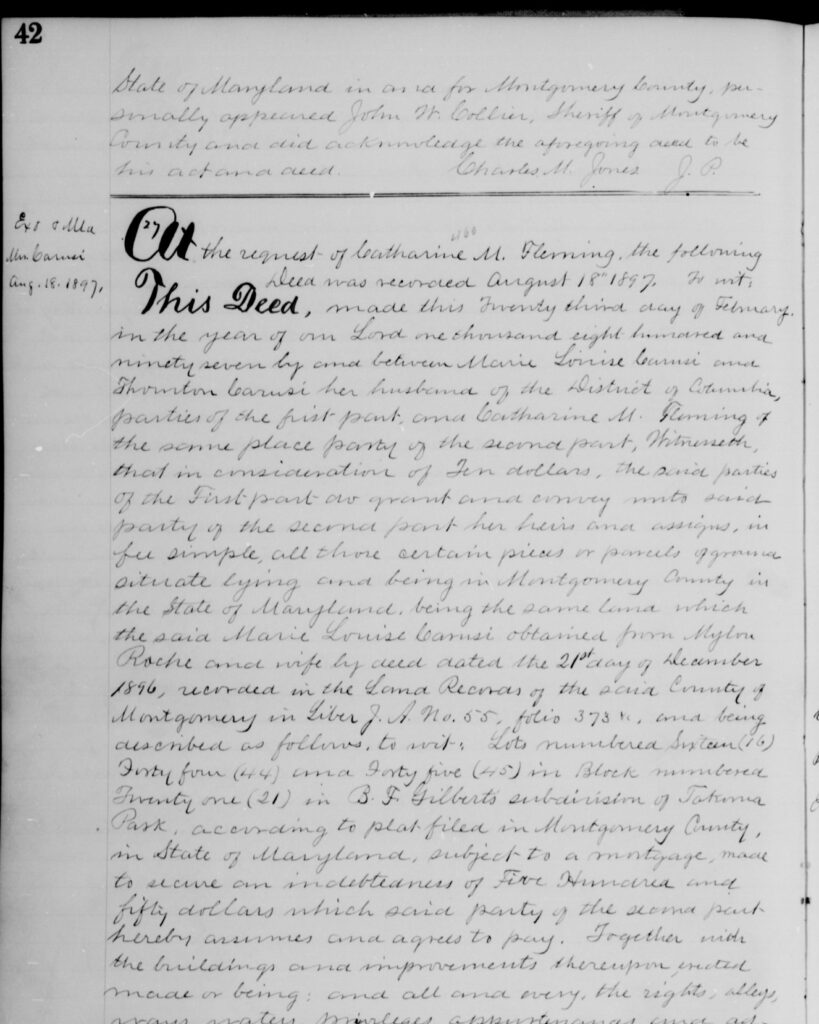 42
State of Maryland in and for Montgomery County, per-
sonally appeared John W. Collier, Sheriff of Montgomery
County and did acknowledge the aforegoing deed to be
his act and deed. Charles M. Jones J. P.
Exd & Mld
Mrs. Carusi
Aug. 18. 1897.
27
At the request of Catharine M. Fleming, the following
Deed was recorded August 18th 1897, To wit:
This Deed, made this Twenty third day of February,
in the year of our Lord one thousand eight hundred and
ninety seven by and between Marie Louise Carusi and
Thornton Carusi her husband of the District of Columbia,
parties of the first part, and Catharine M. Fleming of
the same place party of the second part, Witnesseth,
that in consideration of Ten dollars, the said parties
of the First part do grant and convey unto said
party of the second part her heirs and assigns, in
fee simple, all those certain pieces or parcels of ground
situate lying and being in Montgomery County in
the State of Maryland, being the same land which
the said Marie Louise Carusi obtained from Mylon
Roche and wife by deed dated the 21st day of December
1896, recorded in the Land Records of the said County of
Montgomery in Liber J. A. No. 55, folio 373 &c, and being
described as follows, to wit: Lots numbered Sixteen (16)
Forty four (44) and Forty five (45) in Block numbered
Twenty one (21) in B. F. Gilberts subdivision of Takoma
Park, according to plat filed in Montgomery County,
in State of Maryland, subject to a mortgage, made
to secure an indebtedness of Five Hundred and
fifty dollars which said party of the second part
hereby assumes and agrees to pay. Together with
the buildings and improvements thereupon erected
made or being: and all and every, the rights, alleys,
ways waters privileges appurtenances and ad-